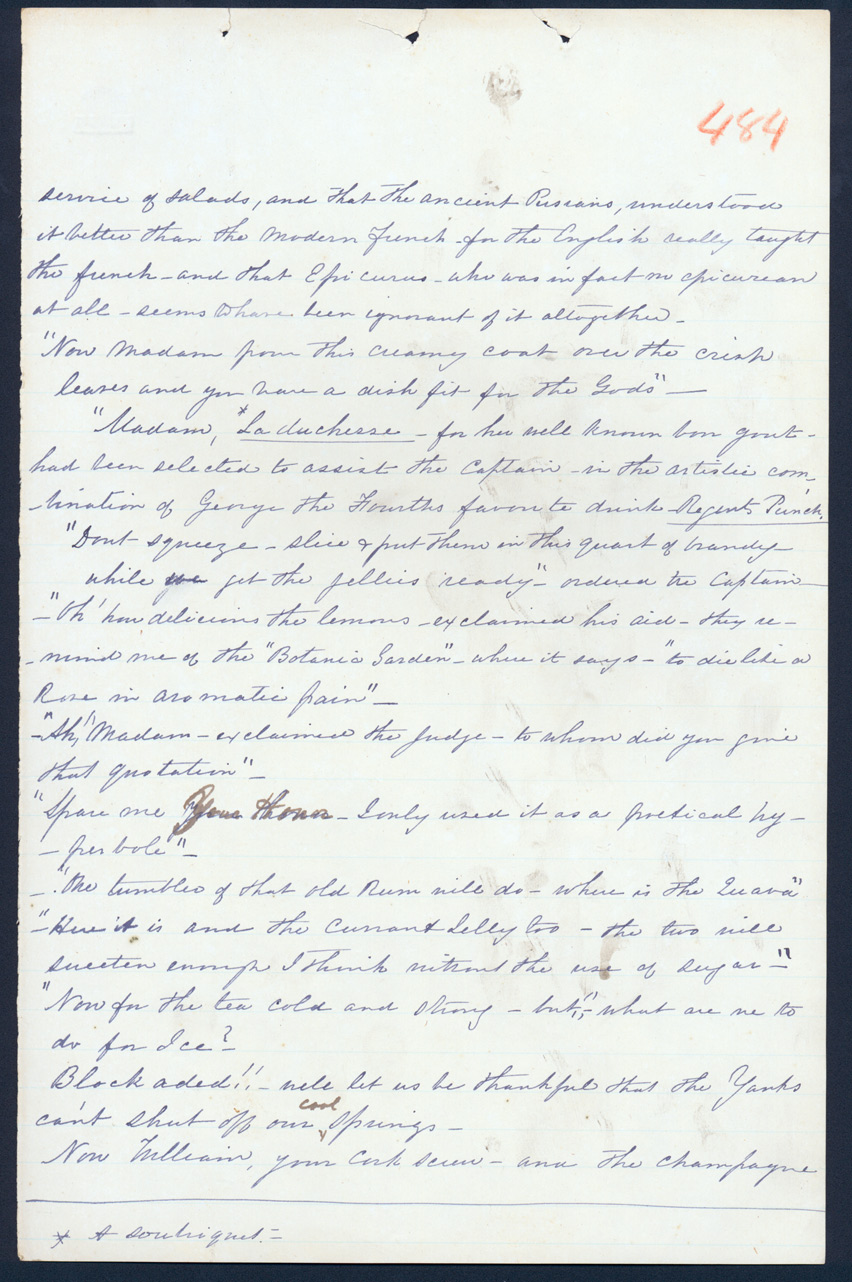 484
service of salads, and that the ancient Pursians, understood
it better than the modern french - for the English really taught
the french - and that Epicurus - who was in fact no epicurean
at all - seems to have been ignorant of it altogether -
"Now Madam pour this creamy coat over the crisp
leaves and you have a dish fit for the Gods" —
"Madam, *La duchesse - for her well known bon gout -
had been selected to assist the Captain - in the artistic com-
-bination of George the Fourths favorite drink - Regents Punch.
"Dont squeeze - slice & put them in this quart of brandy -
while you get the jellies ready" - ordered the Captain —
- "Oh' how delicious the lemons - exclaimed his aid - they re-
-mind me of the "Botanic Garden" - where it says - "to die like a
Rose in aromatic pain" —
- "Ah," Madam - exclaimed the Judge - to whom did you give
that quotation" -
"Spare me Your Honor - I only used it as a poetical hy-
- perbole" -
- "One tumbler of that old Rum will do - where is the Guava"
- "Here it is and the currant Jelly too - the two will
sweeten enough I think without the use of sugar -"
"Now for the tea cold and strong - but," - what are we to
do for Ice? -
Blockaded!! - well let us be thankful that the Yanks
can't shut off our cool springs -
Now William, your cork screw - and the champagne
* A soubriquet. -